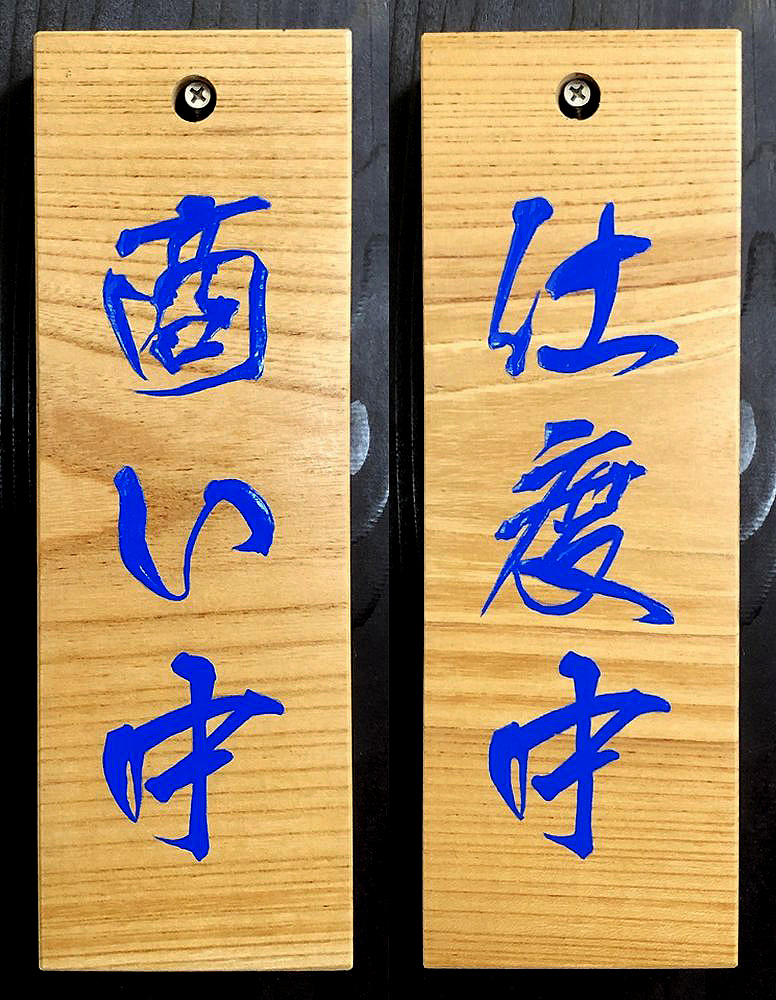 商い中
仕度中